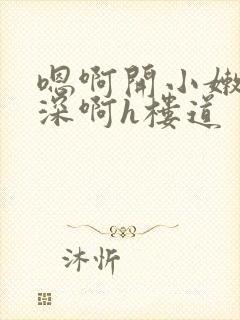 嗯啊開小嫩
深啊h樓道
沐忻